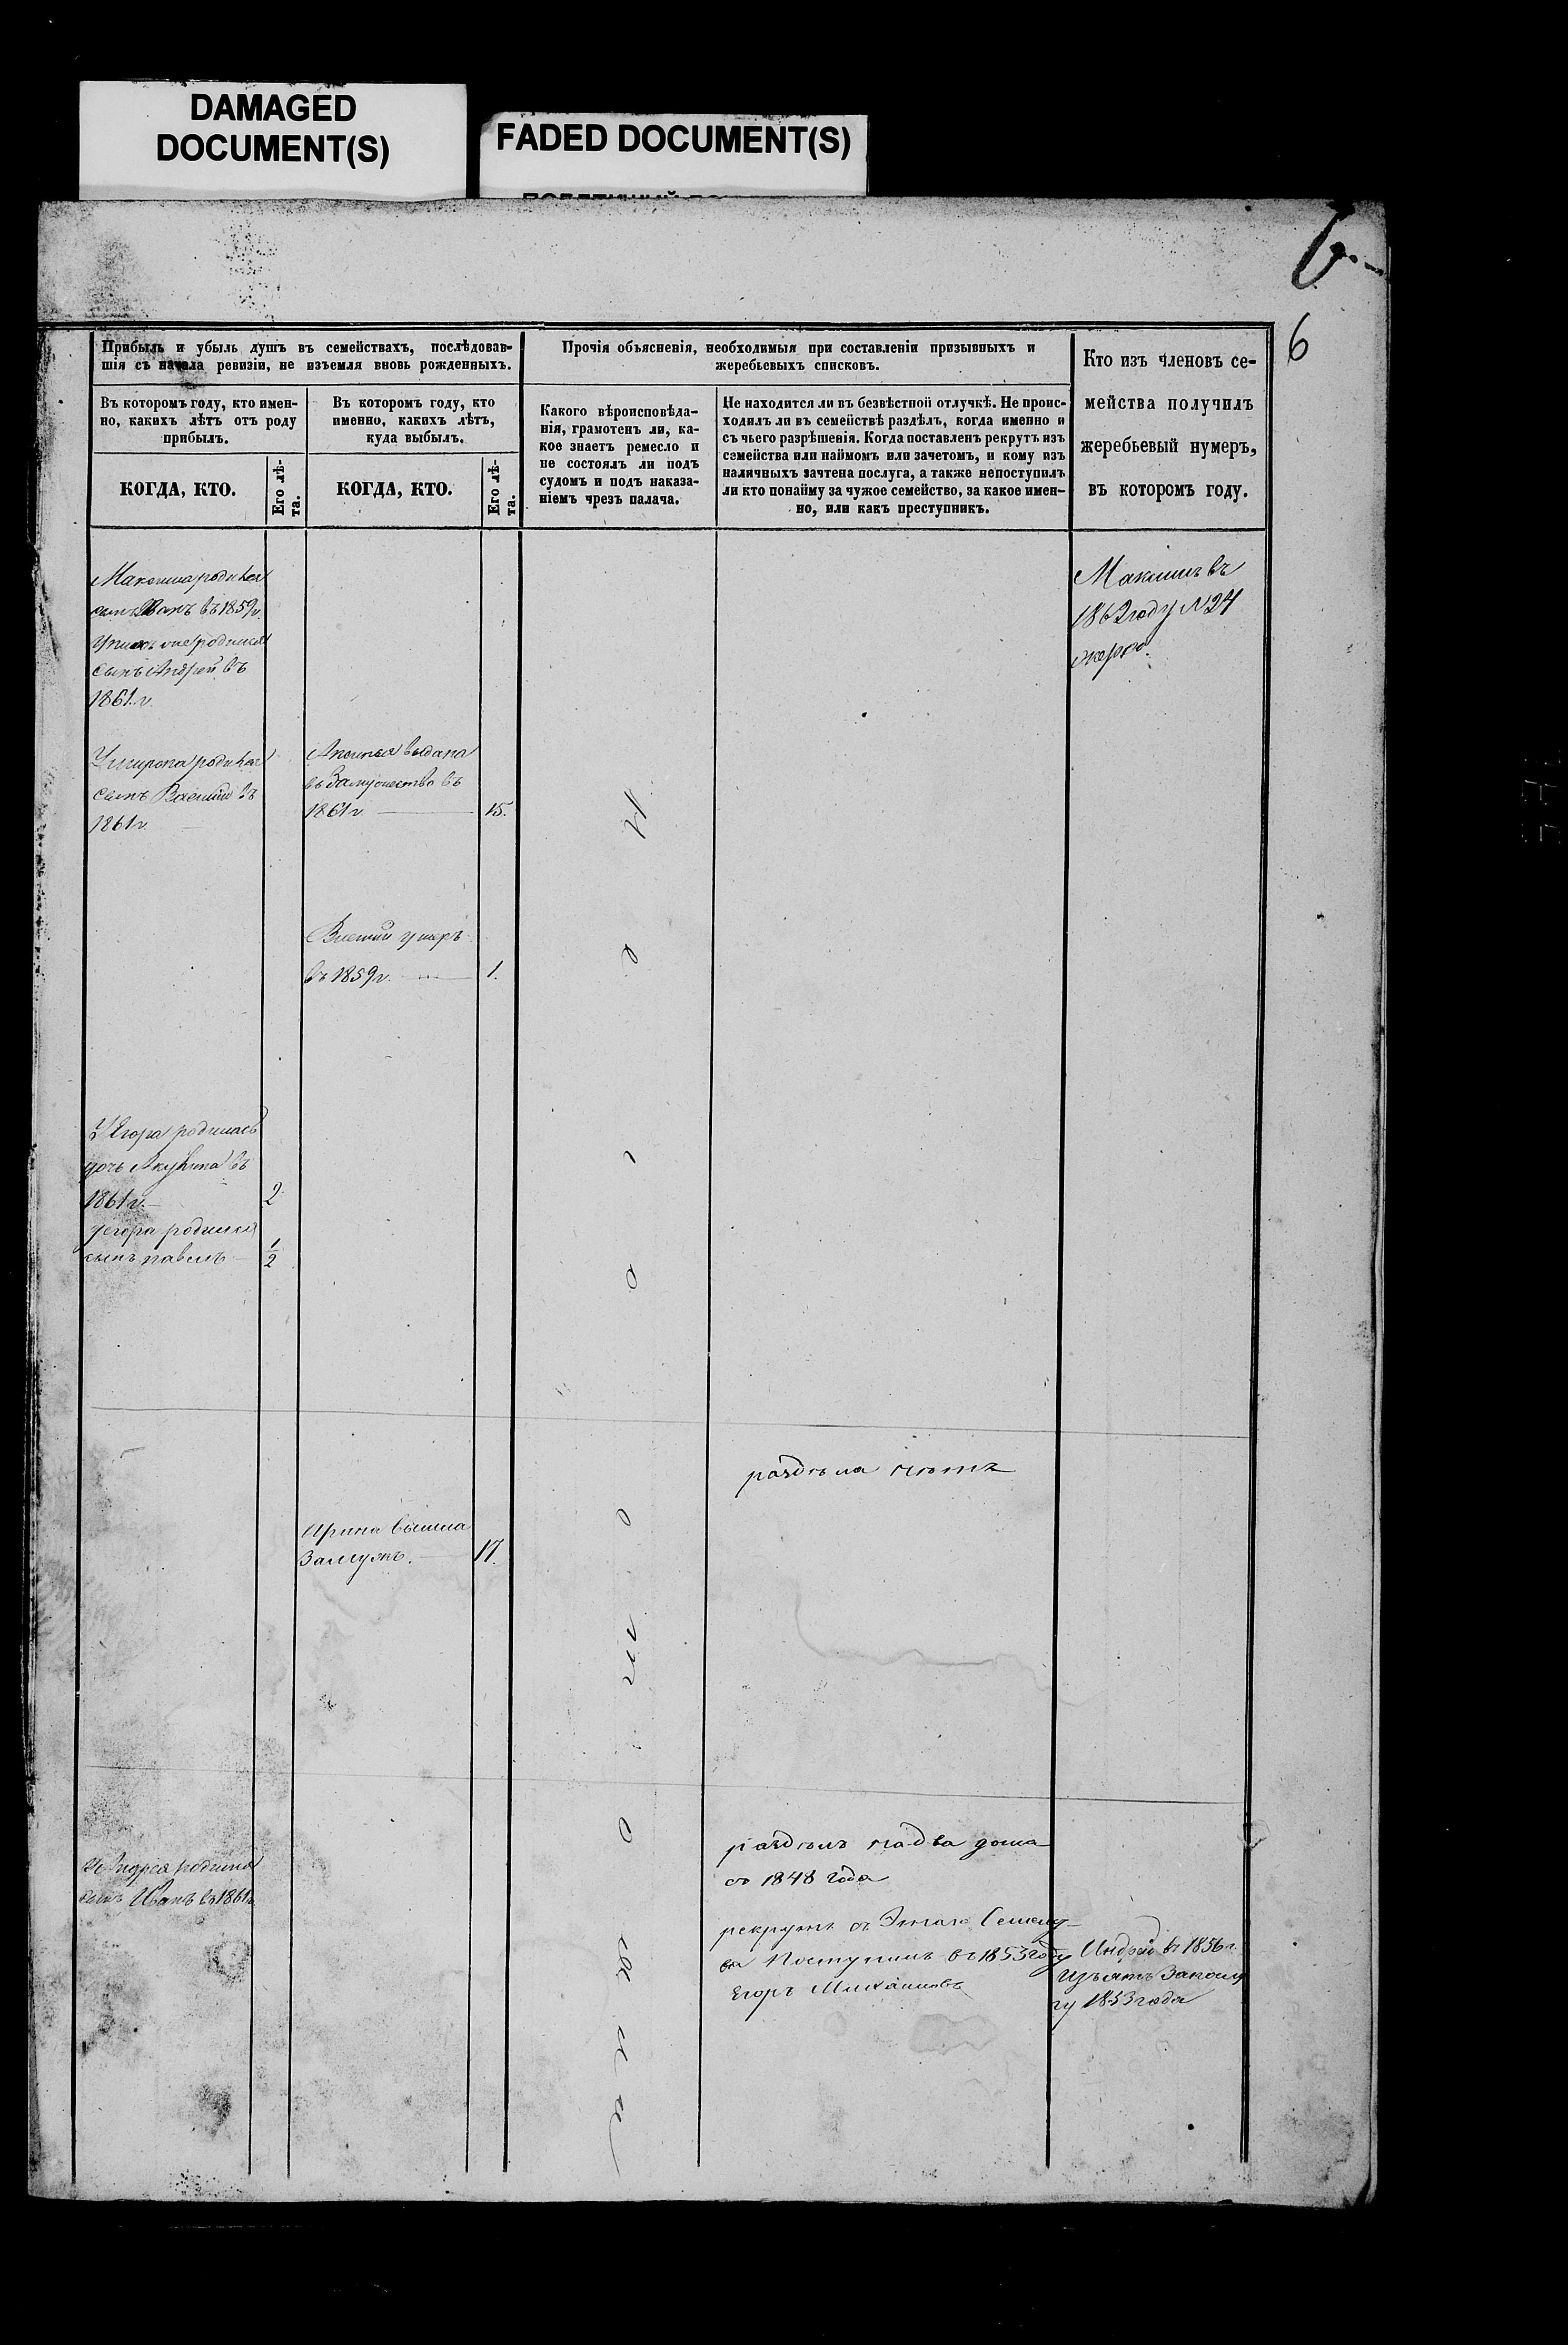 DAMAGED
DOCUMENT(S)
FADED DOCUMENT(S)
6
Прибыль и убыль душъ въ семействахъ, послѣдовав-
шія съ начала ревизіи, не изъемля вновь рожденныхъ.
Въ которомъ году, кто имен-
но, какихъ лѣтъ отъ роду
прибылъ.
КОГДА, КТО.
Его лѣ-
та.
Въ которомъ году, кто
именно, какихъ лѣтъ,
куда выбылъ.
КОГДА, КТО.
Его лѣ-
та.
Прочія объясненія, необходимыя при составленіи призывныхъ и
жеребьевыхъ списковъ.
Какого вѣроисповѣда-
нія, грамотенъ ли, ка-
кое знаетъ ремесло и
не состоялъ ли подъ
судомъ и подъ наказа-
ніемъ чрезъ палача.
Не находится ли въ безвѣстной отлучкѣ. Не проис-
ходилъ ли въ семействѣ раздѣлъ, когда именно и
съ чьего разрѣшенія. Когда поставленъ рекрутъ изъ
семейства или наймомъ или зачетомъ, и кому изъ
наличныхъ зачтена послуга, а также непоступилъ
ли кто понайму за чужое семейство, за какое имен-
но, или какъ преступникъ.
Кто изъ членовъ се-
мейства получилъ
жеребьевый нумеръ,
въ которомъ году.
Максима родился
сынъ Иванъ въ 1859 г.
родился
сынъ Андрей въ
1861. г.
Максимъ въ
1862 году №24
родился
сынъ Василий въ
1861 г.
Аксинья выдана
въ замужество въ
1861 г 15.
Василий умеръ
въ 1859 г. 1.
У Егора родилась
дочь Акулина въ
1861 г. 2
У егора родился
сынъ павелъ 1/2
раздѣла нѣтъ
Ирина вышла
замужъ. 17.
У Андрея родился
сынъ Иванъ въ 1861 г.
раздѣлъ на два дома
съ 1848 года
рекрутъ съ Этого Семей-
ва Поступилъ въ 1853 году
Егоръ Михайловъ
Андрей въ 1856 г.
Изъятъ
1853 года